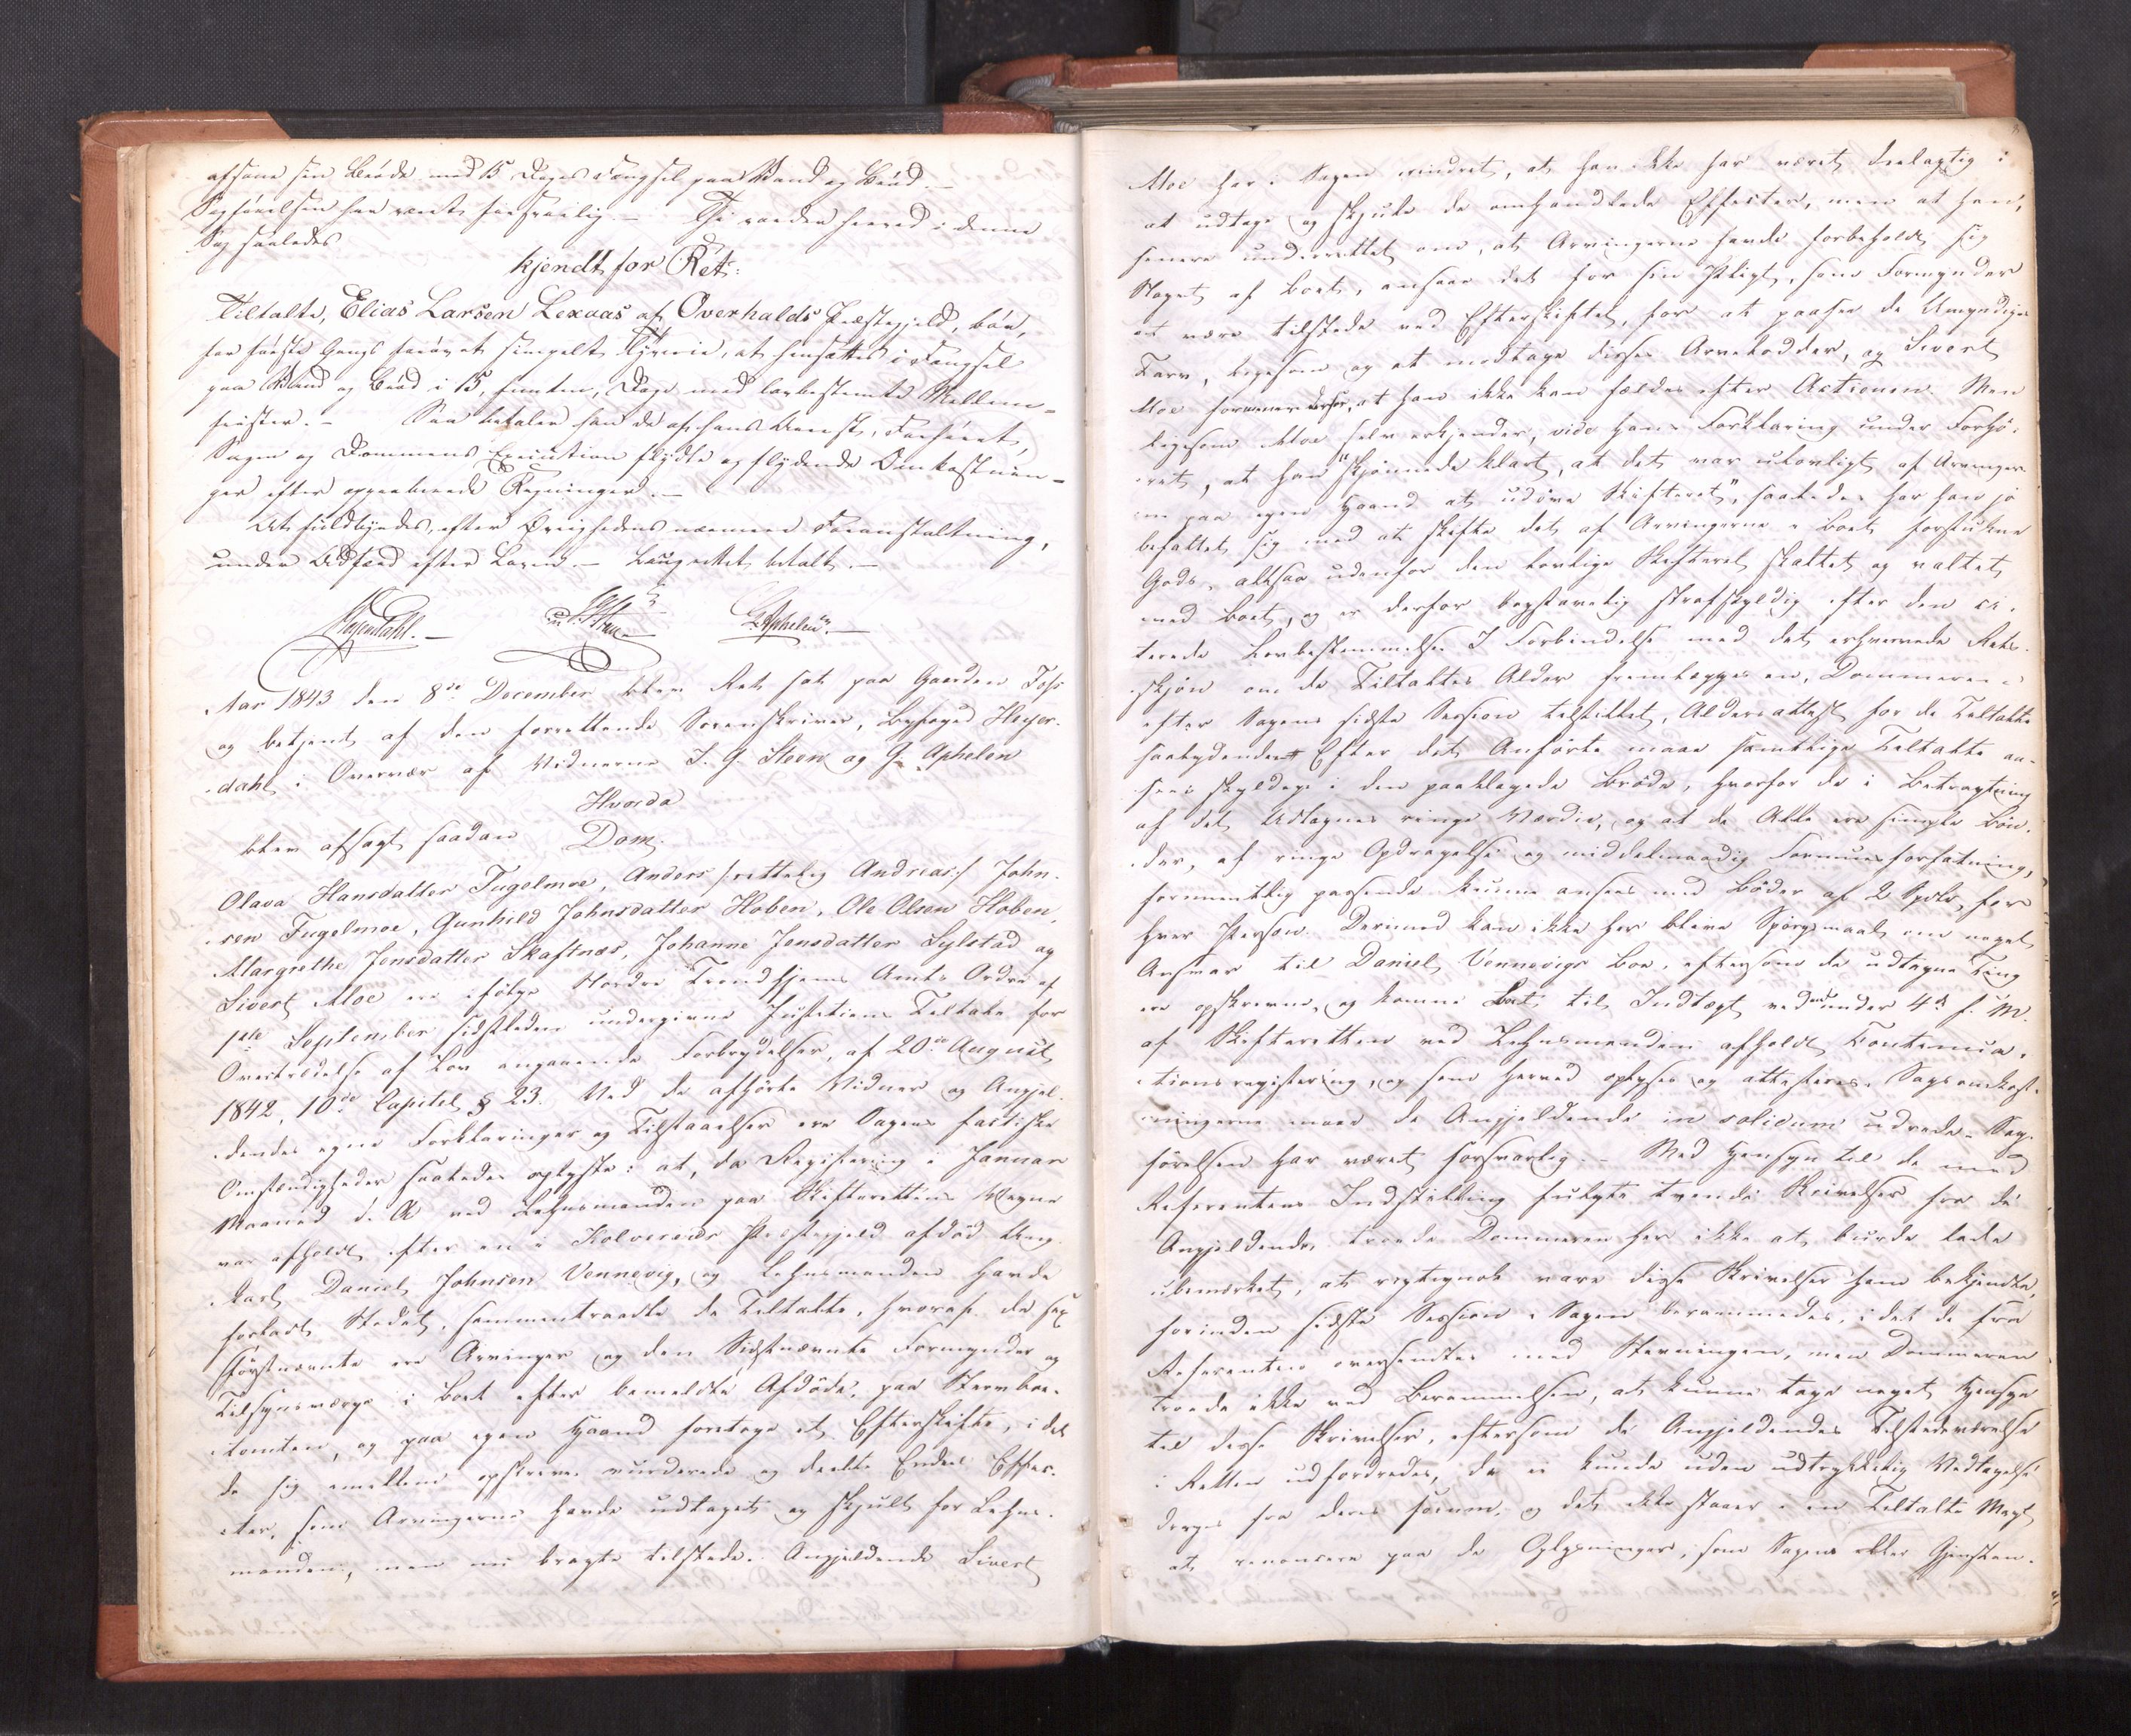 afsone sin Brøde med 15 Dages Fængsel paa Vand og Brød. –
Sagførelsen har været forsvarlig. – Thi vorder herved i denne
Sag saaledes
kjendt for Ret:
Tiltalte, Elias Larsen Lexaas af Overhalds Præstegjeld, bør,
for første Gangs forøvet simpelt Tyverie, at hensættes i Fængsel
paa Vand og Brød i 15, femten, Dage med lovbestemte Mellem-
frister. – Saa betaler han de af hans Arrest, Forhøret,
Sagen og Dommens Execution flydte og flydende Omkostnin-
ger efter approberede Regninger. –
At fuldbyrdes, efter Øvrighedens nærmere Foranstaltning,
under Adfærd efter Loven. – Laugrettet betalt. –
Heyerdahl. – J. G. Steen – G. Aphelen. –
Aar 1843 den 8de December blev Ret sat paa Gaarden
og betjent af den forrettende Sorenskriver, Byfoged Heyer-
dahl i Overvær af Vidnerne J. G. Steen og G. Aphelen
Hvorda
blev afsagt saadan Dom:
Olava Hansdatter Fugelmoe, Anders /:rettelig Andreas:/ John-
sen Fugelmoe, Gunhild Johnsdatter Hoben, Ole Olsen Hoben,
Margrethe Jensdatter Skaftnæs, Johanne Jensdatter Sylstad og
Sivert Moe er ifølge Nordre Trondhjems Amts Ordre af
1ste September sidstleden undergivne Justitiens Tiltale for
Overtrædelse af Lov angaaende Forbrydelser, af 20de August
1842, 10de Capitel § 23. Ved de afhørte Vidner og Angjel-
dendes egne Forklaringer og Tilstaaelser ere Sagens factiske
Omstændigheder saaledes oplyste: at, da Registrering i Januar
Maaned d. A. ved Lehnsmanden paa Skifterettens Vegne
var afholdt efter en i Kolvereids Præstegjeld afdød Ung-
karl Daniel Johnsen Vennevig, og Lehnsmanden havde
forladt Stedet, sammentraadte de Tiltalte, hvoraf de sex
førstnævnte ere Arvinger og den Sidstnævnte Formynder og
Tilsynsværge i Boet efter bemeldte Afdøde, paa Stervboe-
tomten, og paa egen Haand foretoge et Efterskifte, i det
de sig imellem opskreve vurderede og deelte Endeel Effec-
ter, som Arvingerne havde udtaget og skjult for Lehns-
manden, men nu bragte tilstede. Angjeldende Sivert
Moe har i Sagen erindret, at han ikke har været deelagtig i
at udtage og skjule de omhandlede Effecter, men at han,
senere underrettet om, at Arvingerne havde forbeholdt sig
Noget af Boet, ansaae det for sin Pligt, som Formynder
at være tilstede ved Efterskiftet, for at paasee de Umyndiges
Tarv, ligesom og at modtage disses Arvelodder, og Sivert
Moe formener derfor, at han ikke kan fældes efter Actionen. Men
ligesom Moe selv erkjender, vide hans Forklaring under Forhø-
ret, at han "skjønnede klart, at det var ulovligt af Arvinger-
ne paa egen Haand at udøve Skifteret", saaledes har han jo
befattet sig med at skifte det af Arvingerne i Boet forstukne
Gods, altsaa udenfor den lovlige Skifteret skaltet og valtet
med Boet, og er derfor bogstavelig strafskyldig efter den ci-
terede Lovbestemmelse. I Forbindelse med det erhvervede Rets-
skjøn om de Tiltaltes Alder fremlægges en, Dommeren
efter Sagens sidste Session tilstillet, Aldersattest for de Tiltalte
saalydende: Efter det Anførte maae samtlige Tiltalte an-
sees skyldige i den paaklagede Brøde, hvorfor de i Betragtning
af det Udtagnes ringe Værdie, og at de Alle ere simple Bøn-
der, af ringe Opdragelse og middelmaadig Formuesforfatning,
formentlig passende kunne ansees med Bøder af 2 Spdlr for
hver Person. Derimod kan ikke her blive Spørgsmaal om noget
Ansvar til Daniel Vennevigs Boe, eftersom de udtagne Ting
ere opskrevne, og komne Boet til Indtægt ved en under 4de f. M.
af Skifteretten ved Lehnsmanden afholdt Continua-
tionsregistering, og som herved oplyses og attesteres. Sagsomkost-
ningerne maae de Angjeldende in solidum udrede. Sag-
førelsen har været forsvarlig. – Med Hensyn til de med
Referentens Indstilling fulgte tvende Skrivelser for de
Angjeldende troede Dommeren her ikke at burde lade
ubemærket, at rigtignok vare disse Skrivelser ham bekjendte,
forinden sidste Session i Sagen berammedes, i det de fra
Referenten oversendtes med Stevningen, men Dommeren
troede ikke ved Berammelsen, at kunne tage noget Hensyn
til disse Skrivelser, eftersom de Angjeldendes Tilstedeværelse
i Retten udfordredes, da ei kunde uden udtrykkelig Vedtagelse
drages fra deres forum, og det ikke staaer i en Tiltalts Magt
at renoncere paa de Oplysninger, som Sagens eller Gjenstan-